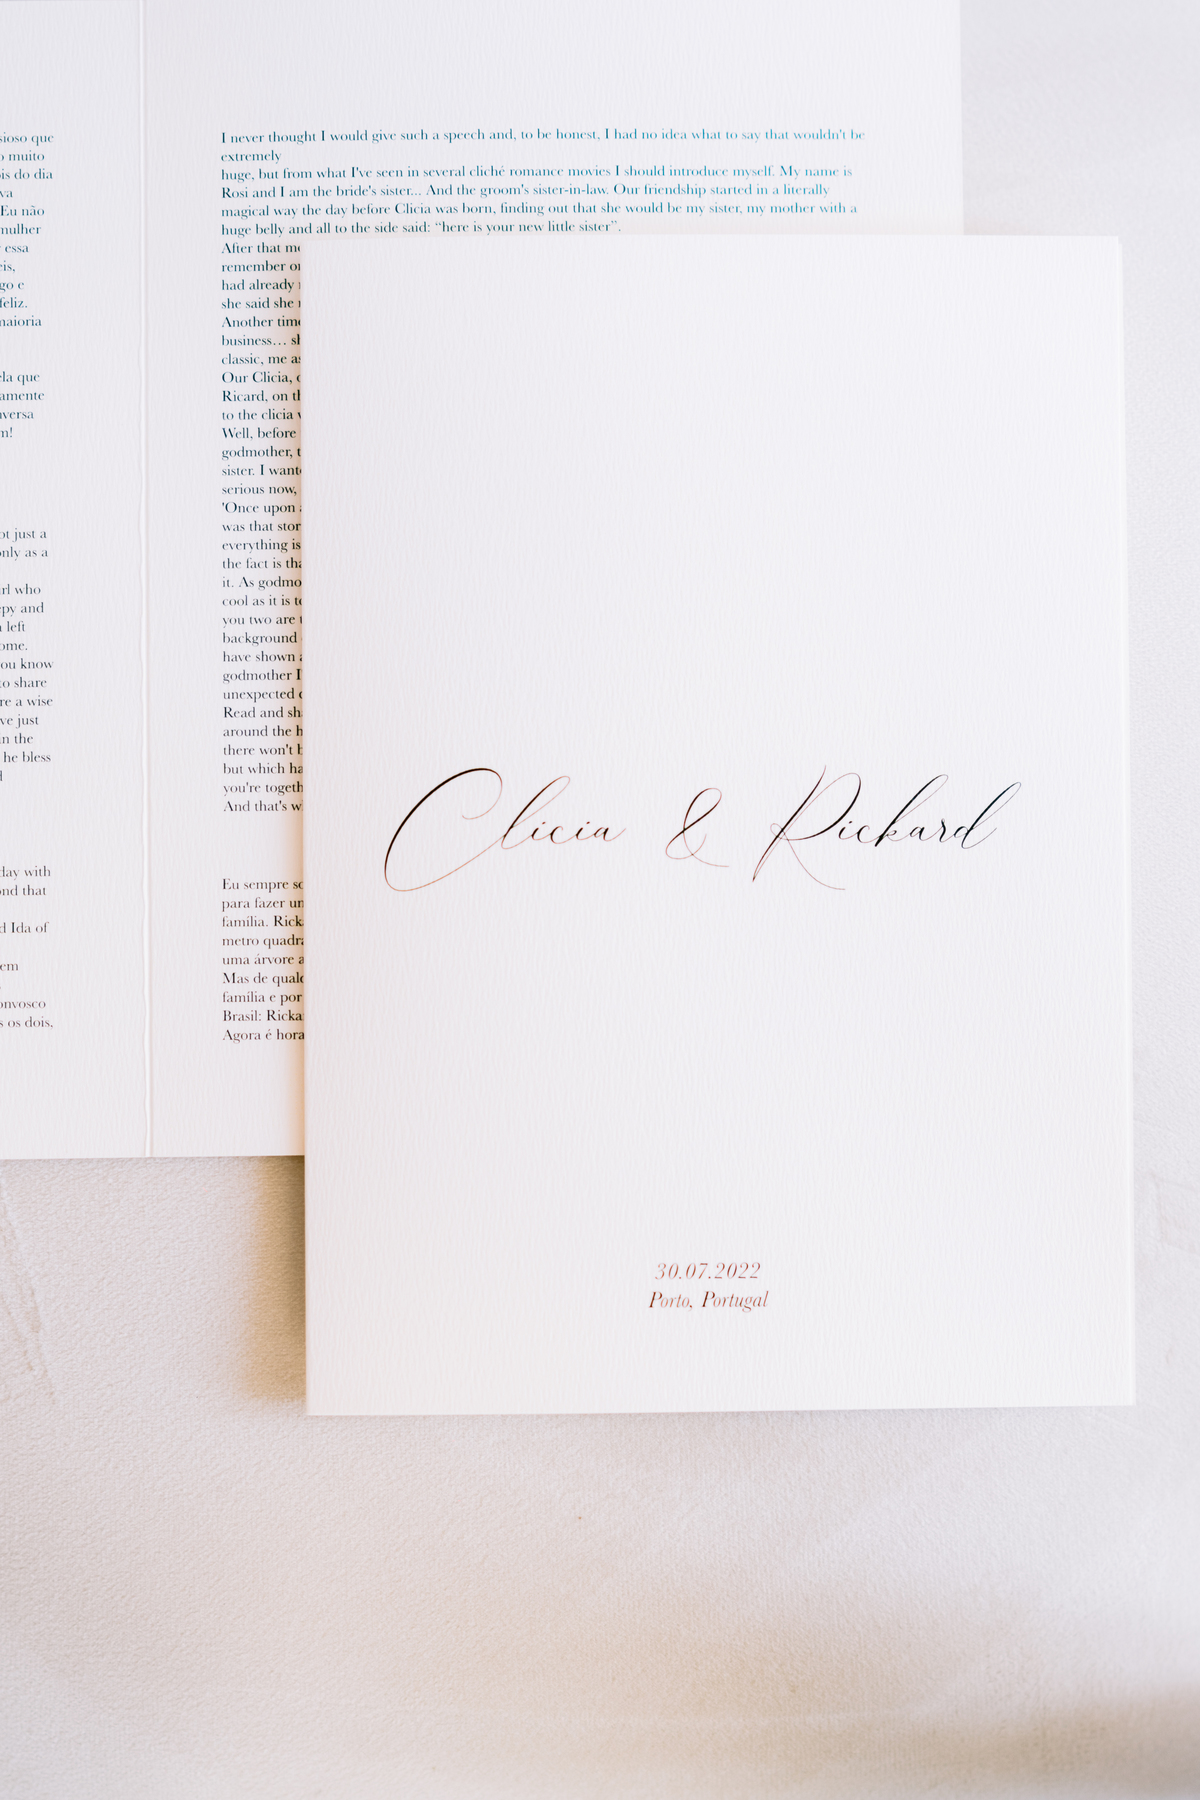 sioso que
muito
is do dia
va
Eu não
mulher
essa
eis,
go e
feliz.
maioria
ela que
amente
versa
m!
ot just a
only as a
rl who
py and
left
ome.
ou know
to share
re a wise
ve just
in the
he bless
day with
ond that
Ida of
em
onvosco
s os dois,
I never thought I would give such a speech and, to be honest, I had no idea what to say that wouldn't be
extremely
huge, but from what I've seen in several cliché romance movies I should introduce myself. My name is
Rosi and I am the bride's sister... And the groom's sister-in-law. Our friendship started in a literally
magical way the day before Clicia was born, finding out that she would be my sister, my mother with a
huge belly and all to the side said: “here is your new little sister”.
After that
remember
had already
she said she
Another
business…
classic, me
Our Clicia,
Ricard, on
to the clicia
Well, before
godmother,
sister. I
serious now,
'Once upon
was that
everything is
the fact is
it. As
cool as it is
you two are
background
have shown
godmother
unexpected
Read and
around the
there won't
but which
you're
And that's
Eu sempre
para fazer
família.
metro
uma árvore
Mas de
família e por
Brasil:
Agora é hora
Clicia & Rickard
30.07.2022
Porto, Portugal